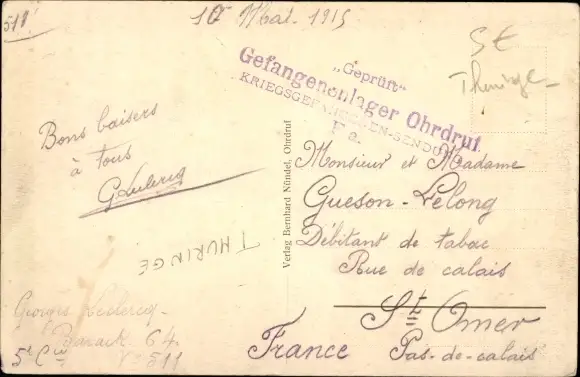 511
10 Mai 1915
St
Thuringe
„Geprüft“
Gefangenenlager Ohrdruf
KRIEGSGEFANGENEN-SENDUNG
F. a.
Bons baisers
à tous
G Leclercq
THURINGE
Georges Leclercq
Barack 64
5e Cie N° 511
Verlag Bernhard Nündel, Ohrdruf
Monsieur et Madame
Gueson-Lelong
Débitant de tabac
Rue de calais
St Omer
France Pas-de-calais